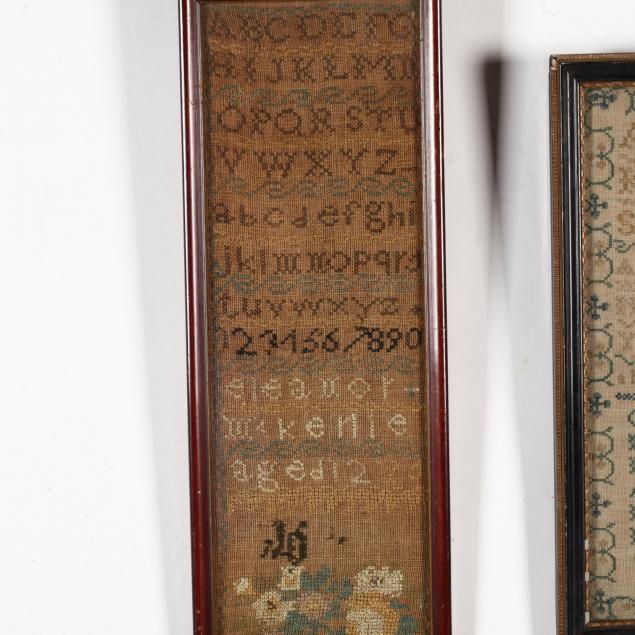 ABCDEFG
HIJKLMN
OPQRSTU
VWXYZ
abcdefghi
jklmnopqrs
tuvwxyz
1234567890
eleanor
mckenie
aged12